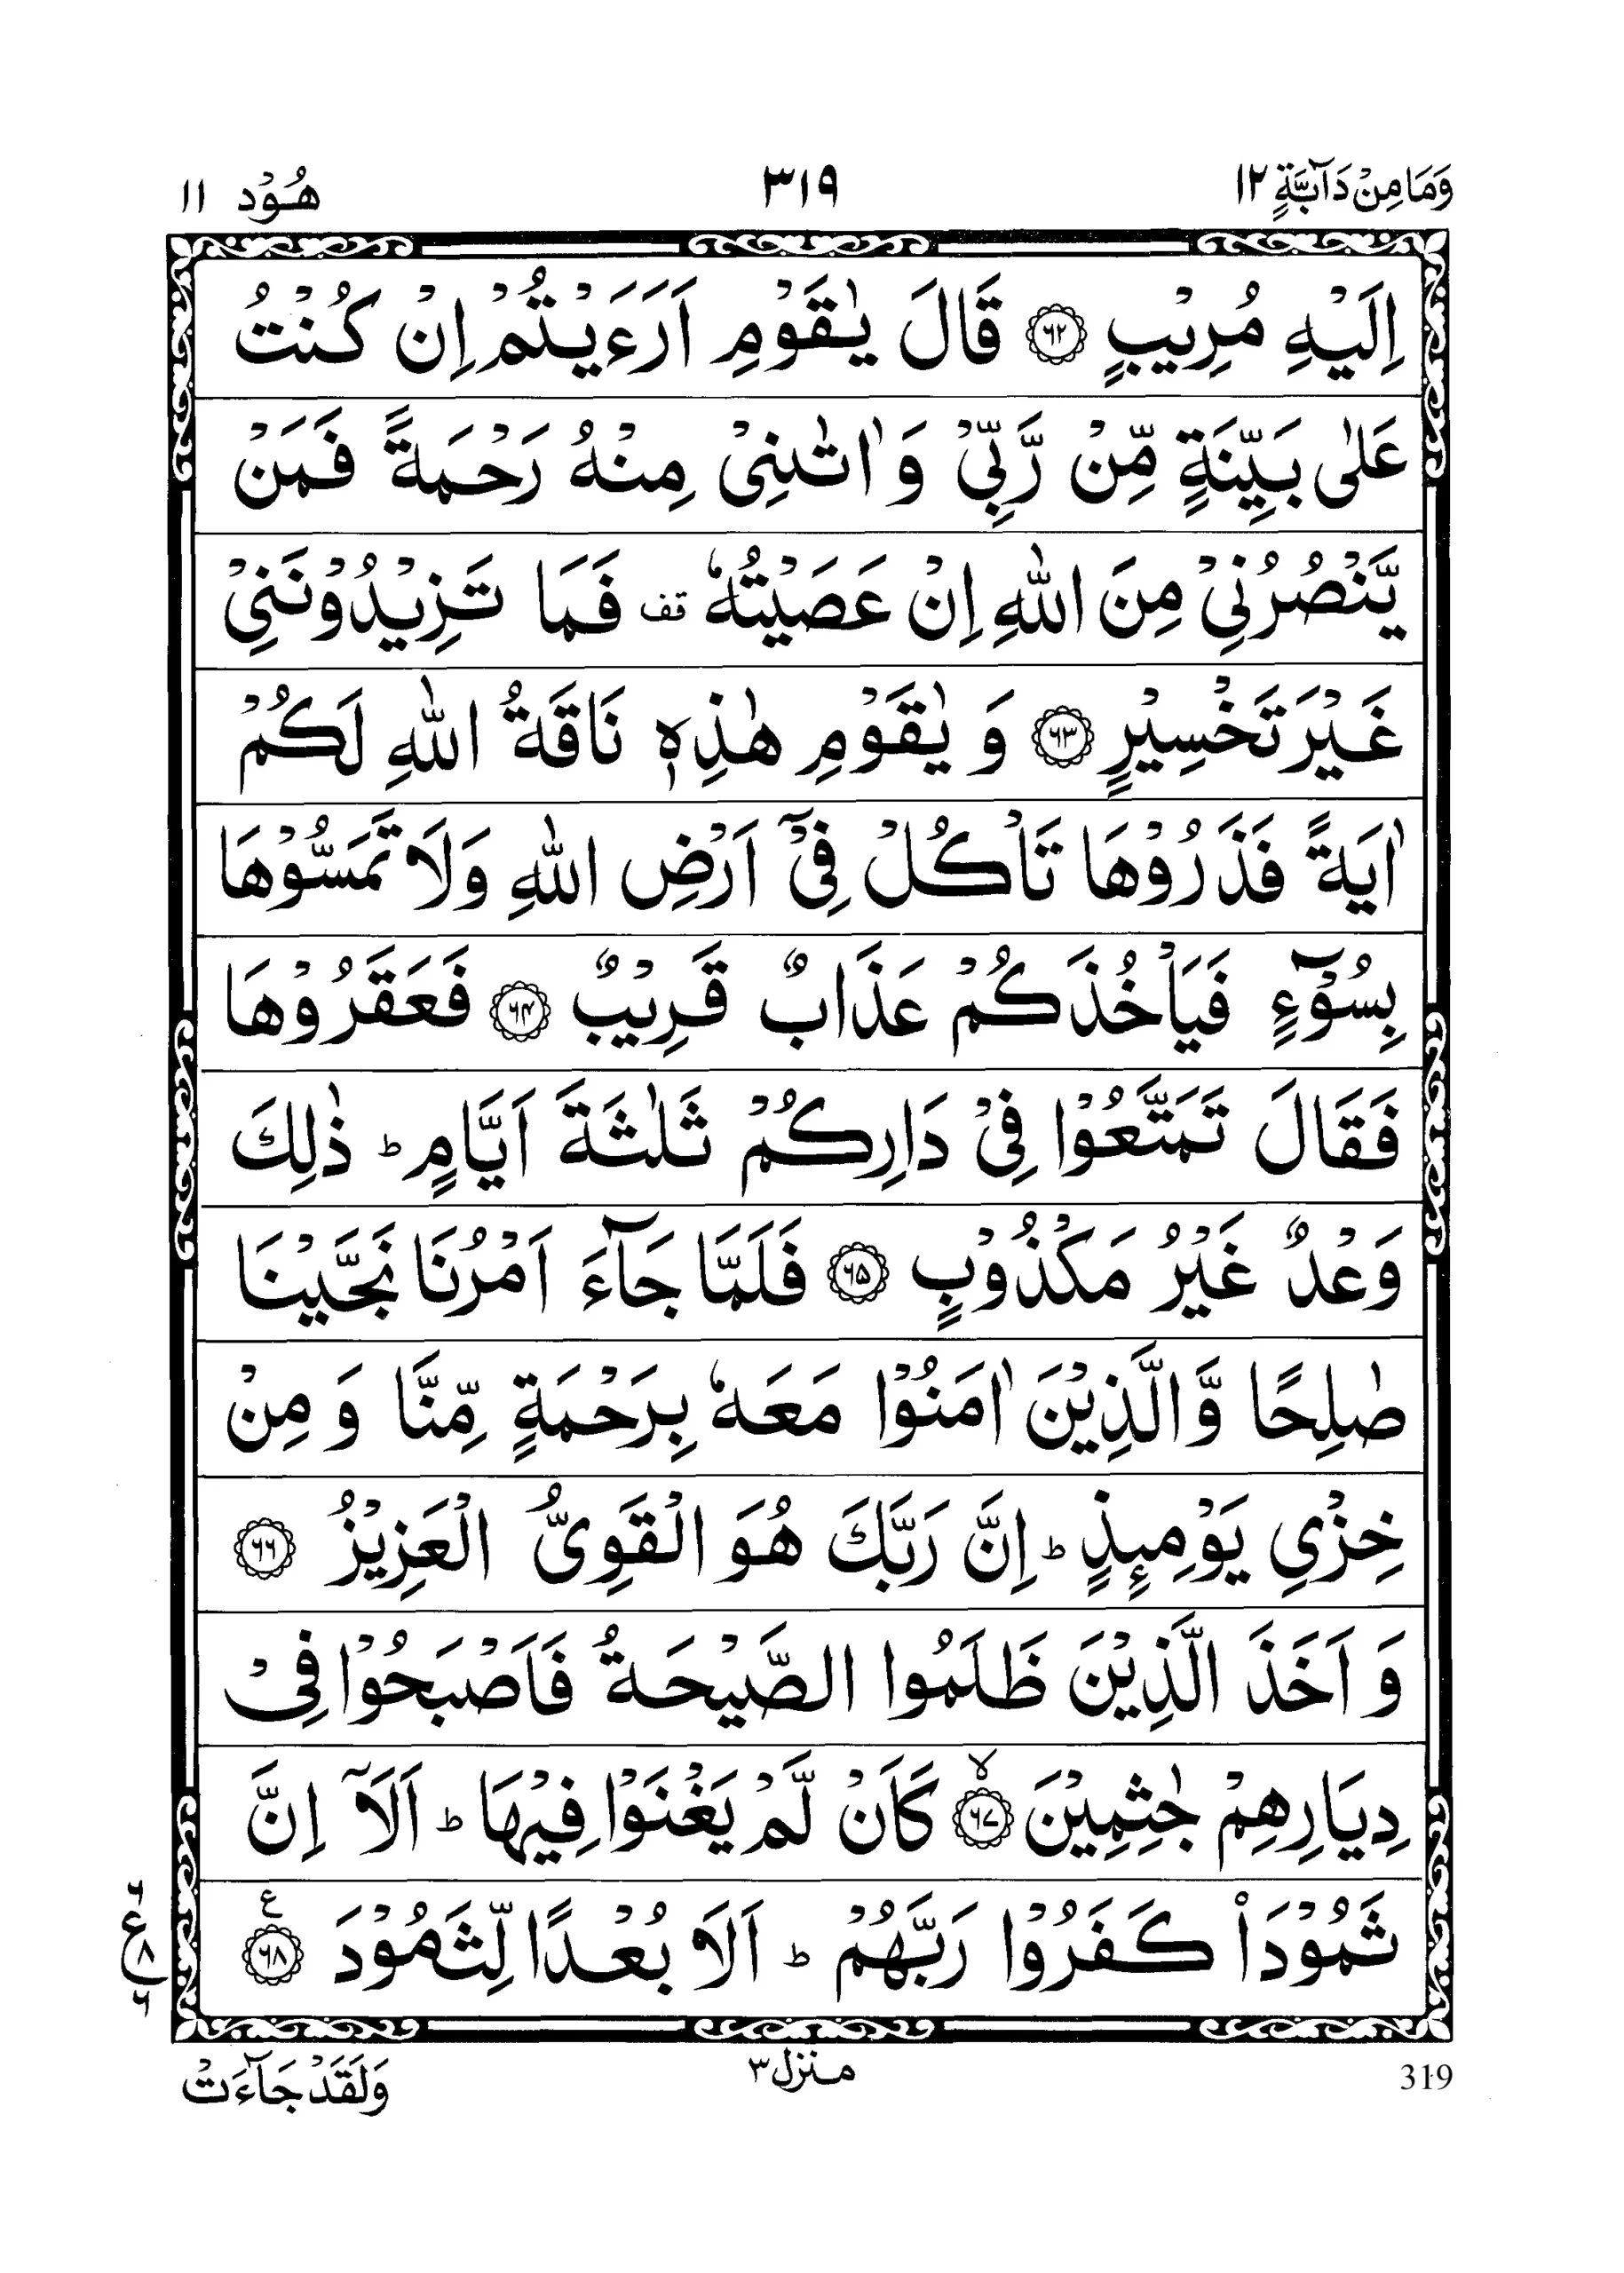 وَمَا مِنْ دَآبَّةٍ ١٢ ٣١٩ هُوْد ١١
اِلَيْهِ مُرِيْبٍ ﴿٦٢﴾ قَالَ يٰقَوْمِ اَرَءَيْتُمْ اِنْ كُنْتُ
عَلٰى بَيِّنَةٍ مِّنْ رَّبِّيْ وَاٰتٰىنِيْ مِنْهُ رَحْمَةً فَمَنْ
يَّنْصُرُنِيْ مِنَ اللّٰهِ اِنْ عَصَيْتُهٗ قف فَمَا تَزِيْدُوْنَنِيْ
غَيْرَ تَخْسِيْرٍ ﴿٦٣﴾ وَ يٰقَوْمِ هٰذِهٖ نَاقَةُ اللّٰهِ لَكُمْ
اٰيَةً فَذَرُوْهَا تَاْكُلْ فِيْٓ اَرْضِ اللّٰهِ وَلَا تَمَسُّوْهَا
بِسُوْٓءٍ فَيَاْخُذَكُمْ عَذَابٌ قَرِيْبٌ ﴿٦٤﴾ فَعَقَرُوْهَا
فَقَالَ تَمَتَّعُوْا فِيْ دَارِكُمْ ثَلٰثَةَ اَيَّامٍ ؕ ذٰلِكَ
وَعْدٌ غَيْرُ مَكْذُوْبٍ ﴿٦٥﴾ فَلَمَّا جَآءَ اَمْرُنَا نَجَّيْنَا
صٰلِحًا وَّالَّذِيْنَ اٰمَنُوْا مَعَهٗ بِرَحْمَةٍ مِّنَّا وَ مِنْ
خِزْيِ يَوْمِئِذٍ ؕ اِنَّ رَبَّكَ هُوَ الْقَوِيُّ الْعَزِيْزُ ﴿٦٦﴾
وَ اَخَذَ الَّذِيْنَ ظَلَمُوا الصَّيْحَةُ فَاَصْبَحُوْا فِيْ
دِيَارِهِمْ جٰثِمِيْنَ ﴿٦٧﴾ۙ كَاَنْ لَّمْ يَغْنَوْا فِيْهَا ؕ اَلَآ اِنَّ
ثَمُوْدَا۠ كَفَرُوْا رَبَّهُمْ ؕ اَلَا بُعْدًا لِّثَمُوْدَ ﴿٦٨﴾ ع
٦ ع ٨ ٦
وَلَقَدْ جَآءَتْ منزل ٣ 319